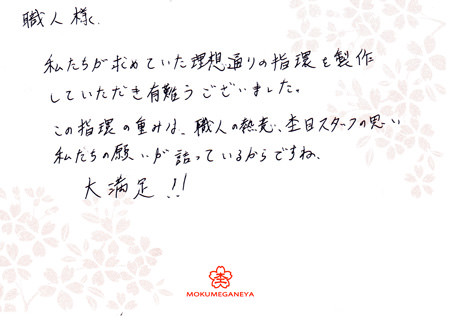 職人様.
私たちが求めていた理想通りの指環を製作
していただき有難うございました。
この指環の重みは、職人の熱意、杢目スタッフの思い
私たちの願いが詰っているからですね、
大満足!!
杢
MOKUMEGANEYA